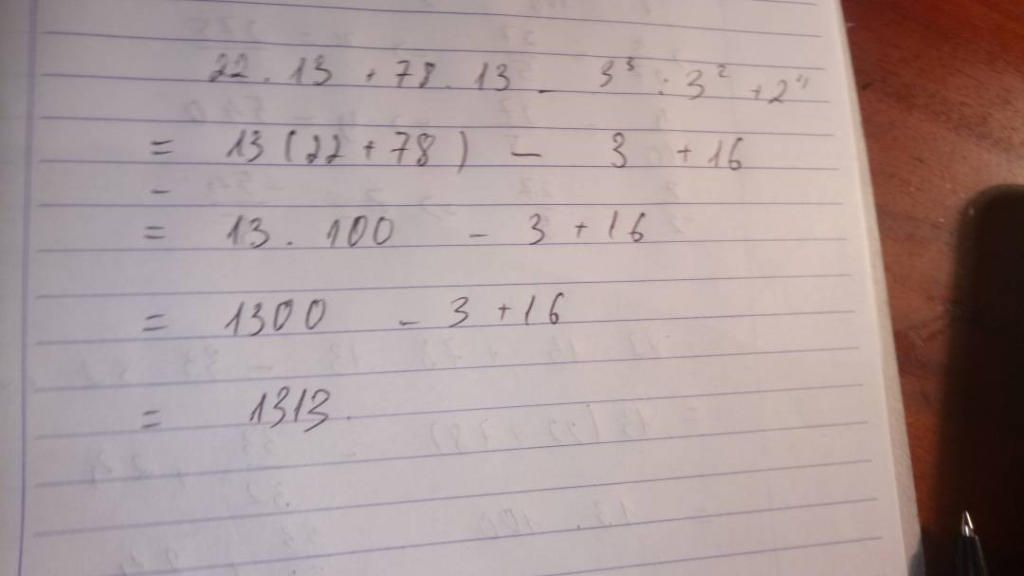 22 . 13 + 78 . 13 - 3³ : 3² + 2⁴
= 13 (22 + 78) - 3 + 16
-
= 13 . 100 - 3 + 16
= 1300 - 3 + 16
= 1313.